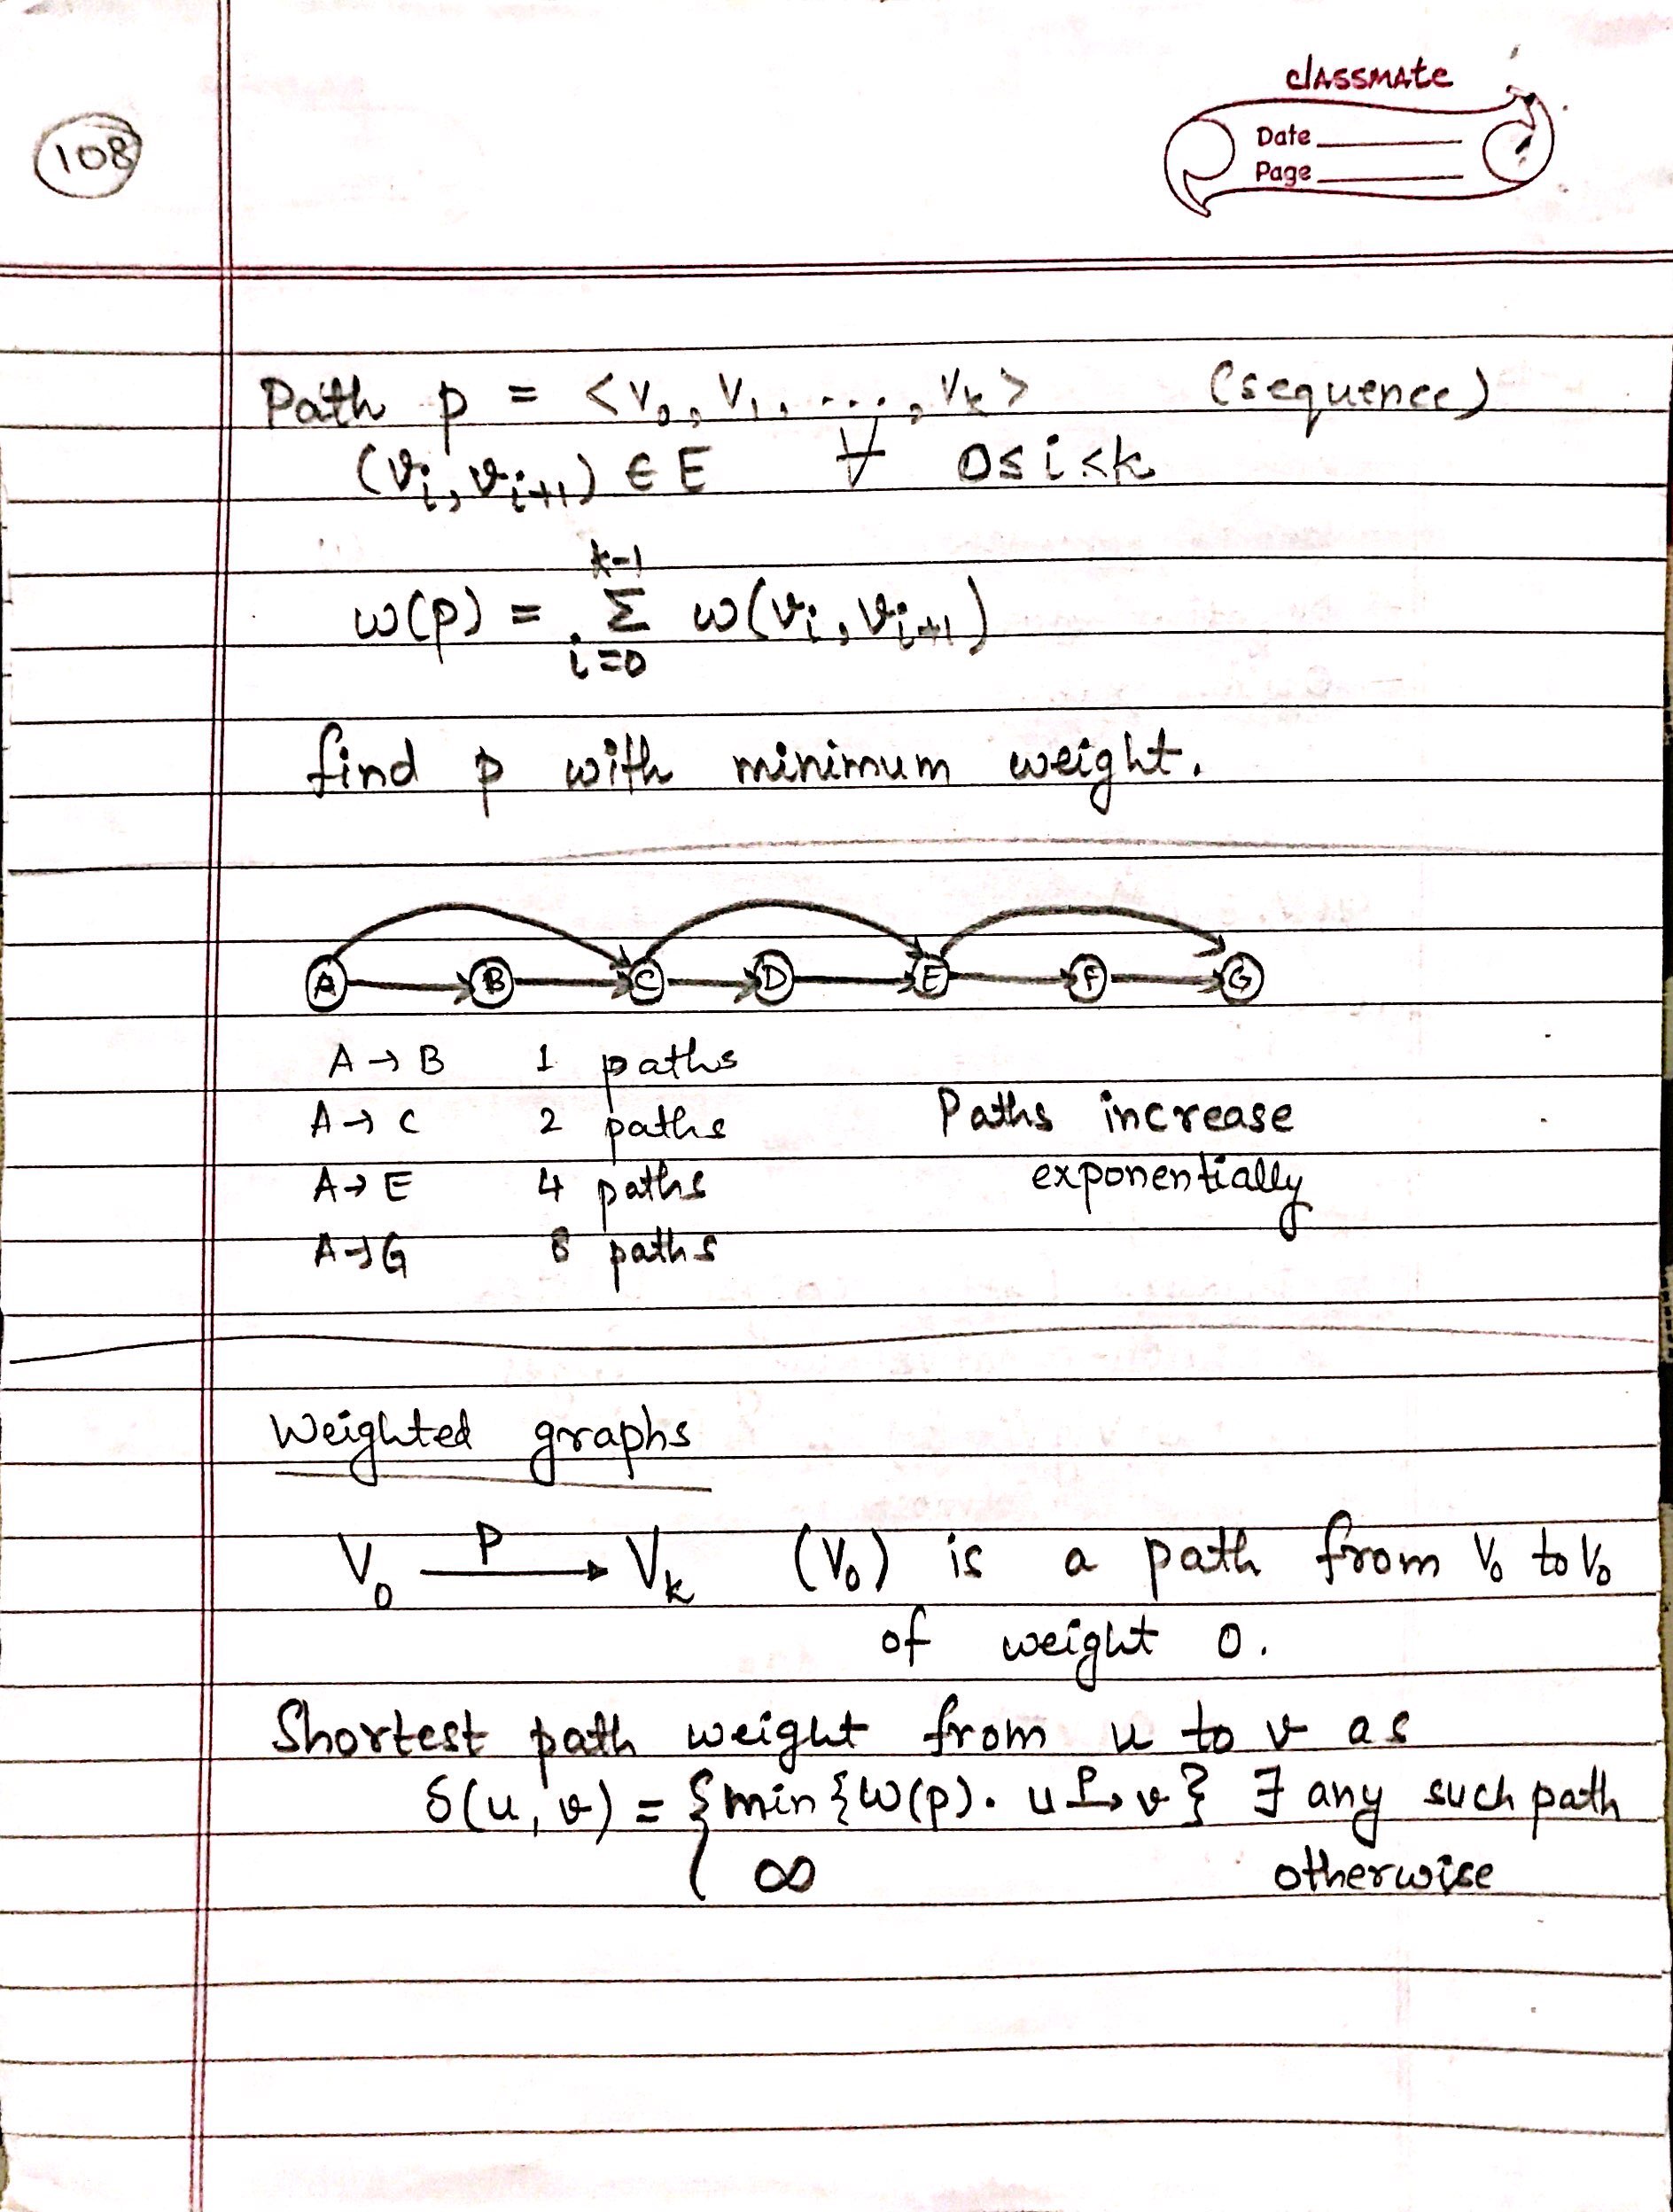 classmate
Date
Page
108
Path p = <v₀, v₁, ...., vₖ> (sequence)
(vᵢ, vᵢ₊₁) ∈ E ∀ 0≤i<k
k-1
w(p) = Σ w(vᵢ, vᵢ₊₁)
i=0
find p with minimum weight.
A B C D E F G
A → B 1 paths
A → C 2 paths
Paths increase
A → E 4 paths
exponentially
A → G 8 paths
Weighted graphs
P
V₀ → Vₖ (V₀) is a path from V₀ to V₀
of weight 0.
Shortest path weight from u to v as
δ(u, v) = { min {W(p). u p→ v} ∃ any such path
∞ otherwise